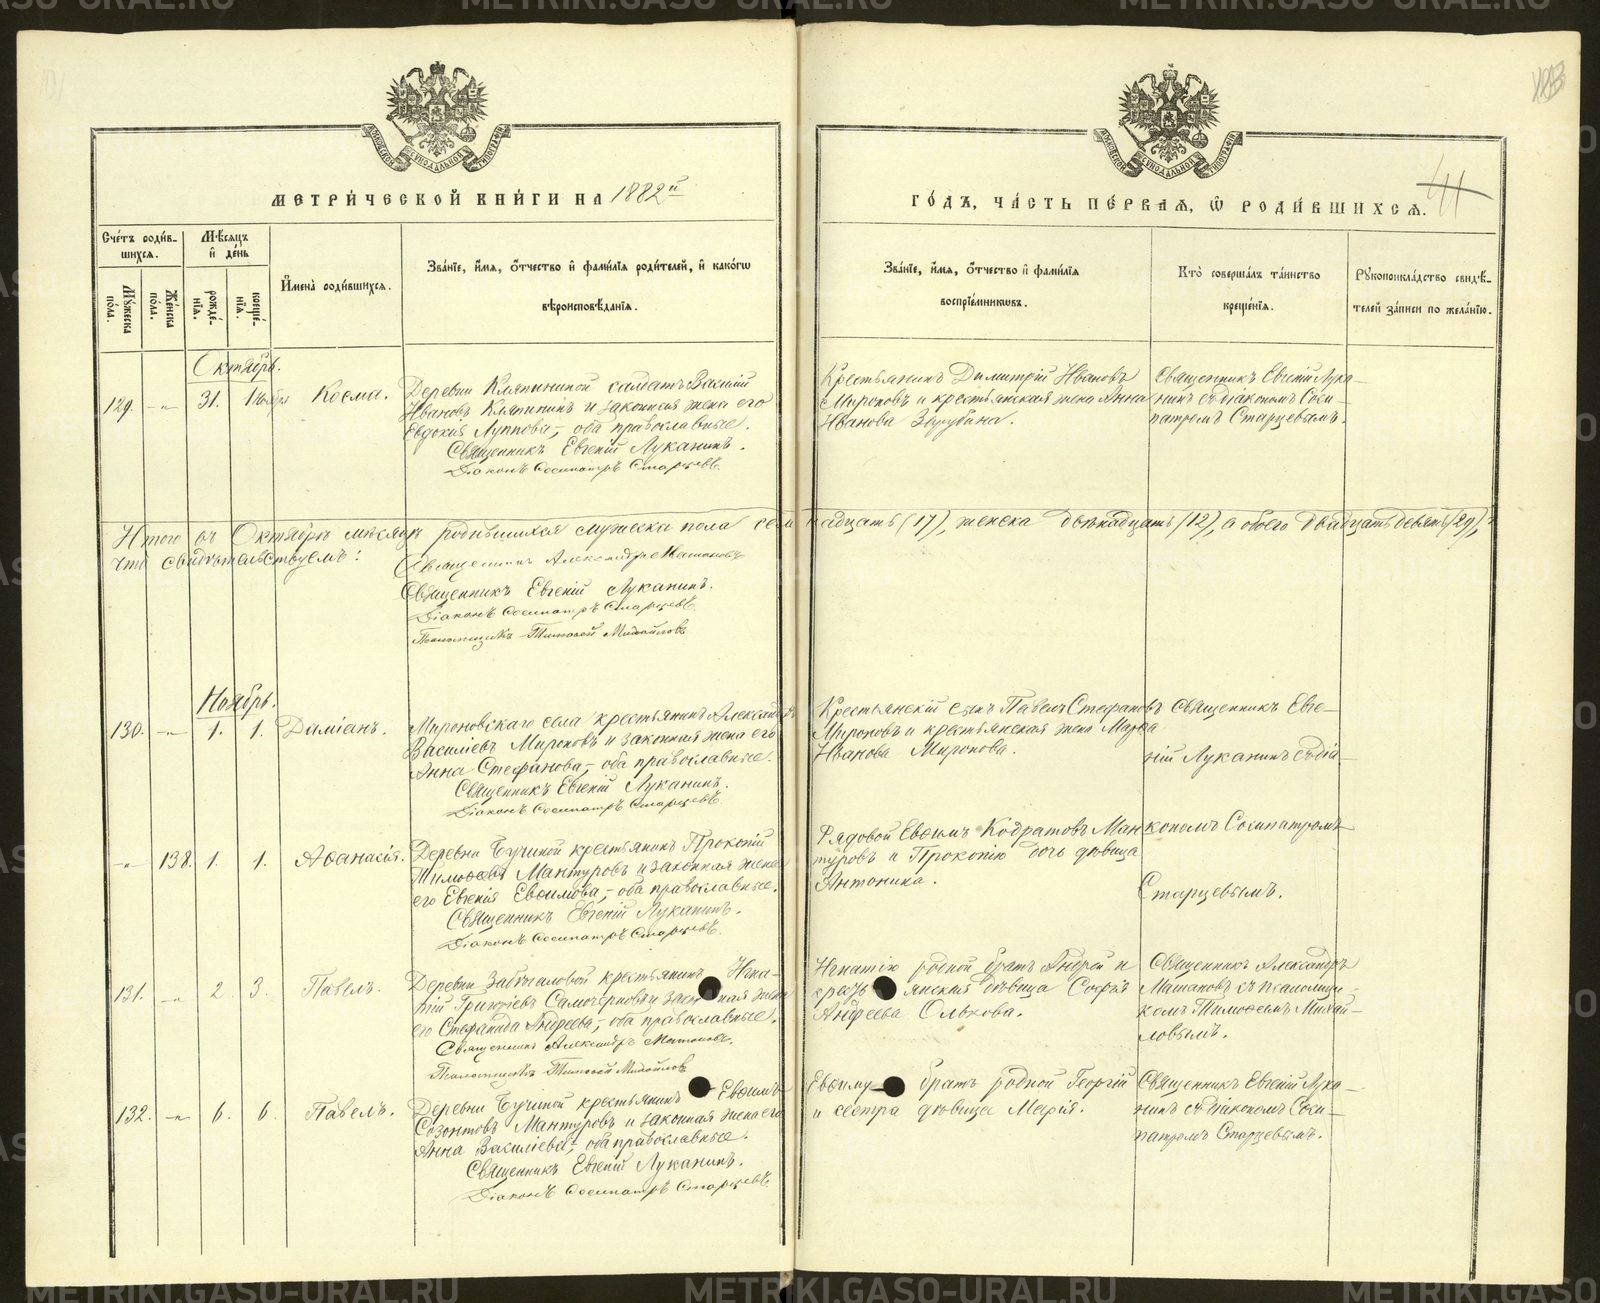 МЕТРИ́ЧЕСКОЙ КНИ́ГИ НА 1882й
ГО́ДЪ, ЧА́СТЬ ПЕ́РВАЯ, Ѽ РОДИ́ВШИХСЯ.
Сче́тъ роди́в-
шихся.
Мѣ́сяцъ
и де́нь
Мꙋжеска
пола.
Же́нска
по́ла.
рожде́-
нїя.
креще́-
нїя.
И҆мена̀ роди́вшихся.
Зва́нїе, и҆́мя, ѻ҆́тчество и҆ фами́лїя роди́телей, и҆ како́гѡ
вѣроисповѣ́данїя.
Зва́нїе, и҆́мя, ѻ҆́тчество и҆ фами́лїя
воспрїе́мникѡвъ.
Кто̀ соверша́лъ та́инство
креще́нїя.
Рꙋкоприкла́дство свидѣ́-
телей за́писи по жела́нїю.
Октябрь.
129. -"- 31. 1 Ноября Косма.
Деревни Кляпининой солдатъ Василій
Ивановъ Кляпининъ и законная жена его
Евдокия Луппова, оба православные.
Священникъ Евгеній Луканинъ.
Діаконъ Сосипатръ Старцевъ
Крестьянинъ Димитрій Ивановъ
Мироновъ и крестьянская жена Анна
Иванова Зарубина.
Священникъ Евгеній Лука-
нинъ съ діакономъ Соси-
патромъ Старцевымъ.
Итого въ Октябрѣ мѣсяцѣ родившихся мужеска пола семнадцать (17), женска двѣнадцать (12), а обоего двадцать девять (29),
что свидѣтельствуемъ:
Священникъ Александръ
Священникъ Евгеній Луканинъ.
Діаконъ Сосипатръ Старцевъ
Псаломщикъ Тимофей Михайловъ
Ноябрь.
130. -"- 1. 1. Даміанъ.
Мироновскаго села крестьянинъ Александръ
Василіевъ Мироновъ и законная жена его
Анна Стефанова, оба православные.
Священникъ Евгеній Луканинъ.
Діаконъ Сосипатръ Старцевъ
Крестьянскій сынъ Павелъ Стефановъ
Мироновъ и крестьянская жена Марѳа
Иванова Миронова.
Священникъ Евге-
ній Луканинъ съ діа-
кономъ Сосипатромъ
Старцевымъ.
-"- 138. 1. 1. Аѳанасія.
Деревни Бучиной крестьянинъ Прокопій
Тимоѳеевъ Мантуровъ и законная жена
его Евгенія Евѳимова, оба православные.
Священникъ Евгеній Луканинъ.
Діаконъ Сосипатръ Старцевъ.
Рядовой Евѳимъ Кодратовъ Ман-
туровъ и Прокопію дочь дѣвица
Антонина.
131. -"- 2. 3. Павелъ.
крестьянинъ Игна-
тій Григоріевъ и жена
его Стефанида Андреева, оба православные.
Священникъ Александръ
Псаломщикъ Тимофей Михайловъ
Игнатію родной братъ Андрей и
дѣвица Софія
Андреева Ольхова.
Священникъ Александръ
съ псаломщи-
комъ Тимоѳеемъ Михай-
ловымъ.
132. -"- 6. 6. Павелъ.
Деревни Бучиной крестьянинъ Евѳимъ
Созонтовъ Мантуровъ и законная жена его
Анна Василіева, оба православные.
Священникъ Евгеній Луканинъ.
Діаконъ Сосипатръ Старцевъ
Евѳиму братъ родной Георгій
и сестра дѣвица Марія.
Священникъ Евгеній Лука-
нинъ съ діакономъ Соси-
патромъ Старцевымъ.
METRIKI.GASO-URAL.RU